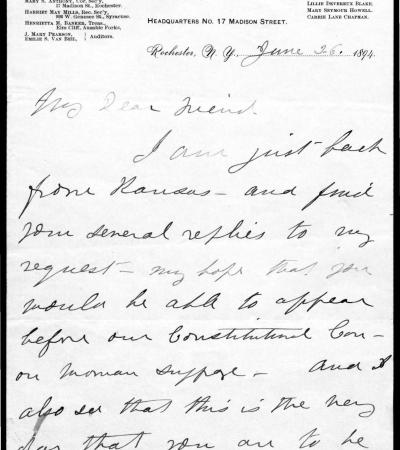 MARY S. ANTHONY, Cor. Sec'y,
17 Madison St., Rochester.
HARRIET MAY MILLS, Rec. Sec'y,
926 W. Genesee St., Syracuse.
HENRIETTA M. BANKER, Treas.,
Elm Cliff, Ausable Forks,
J. MARY PEARSON,
EMILIE S. VAN BIEL, } Auditors.
HEADQUARTERS NO. 17 MADISON STREET.
LILLIE DEVEREUX BLAKE.
MARY SEYMOUR HOWELL.
CARRIE LANE CHAPMAN.
Rochester, N. Y., June 26. 1894.
My Dear Friend.
I am just back
from Kansas - and find
your several replies to my
request - my hope that you
would be able to appear
before our Constitutional Con-
on Woman suffrage - And I
also see that this is the very
day that you are to be